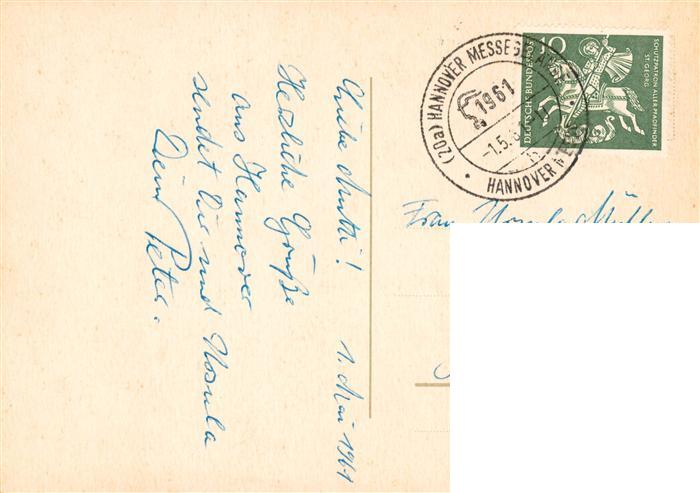 Liebe Mutti! 1. Mai 1961
Herzliche Grüße
aus Hannover
sendet Dir und Ursula
Dein Peter.
(20a) HANNOVER MESSEGELÄNDE
1961
-1.5.61
HANNOVER MESSE
10
DEUTSCHE BUNDESPOST
SCHUTZPATRON ALLER PFADFINDER
ST. GEORG
Frau Ursula Müller